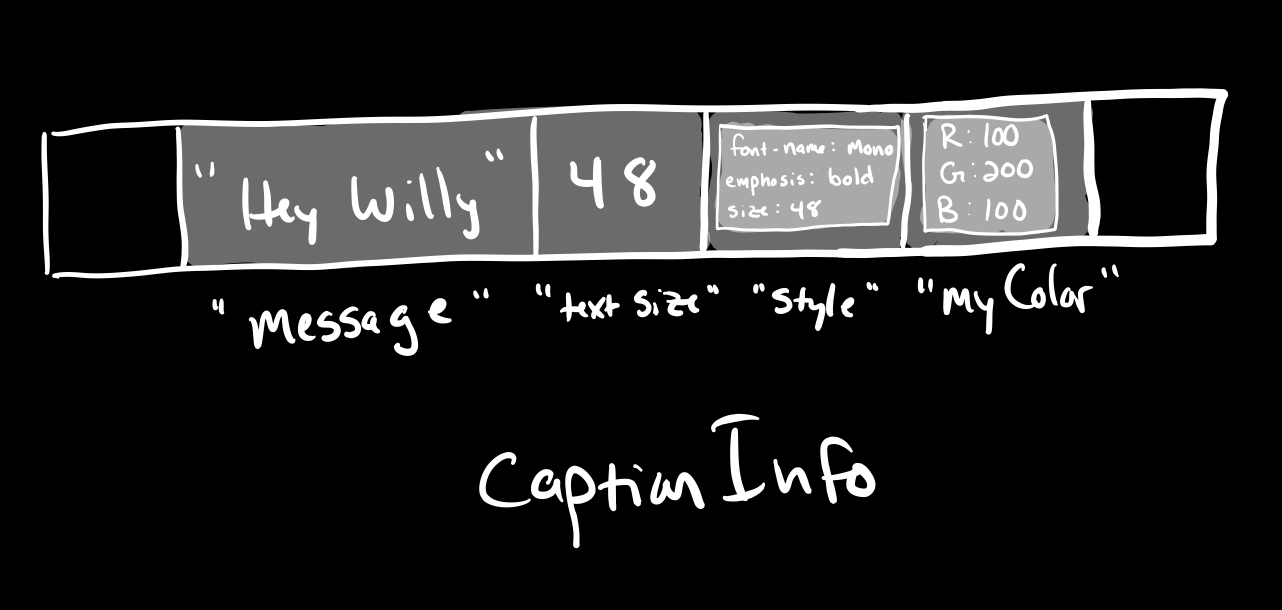 "Hey Willy"
48
font-name: Mono
emphasis: bold
size: 48
R: 100
G: 200
B: 100
"message" "text size" "style" "myColor"
CaptionInfo